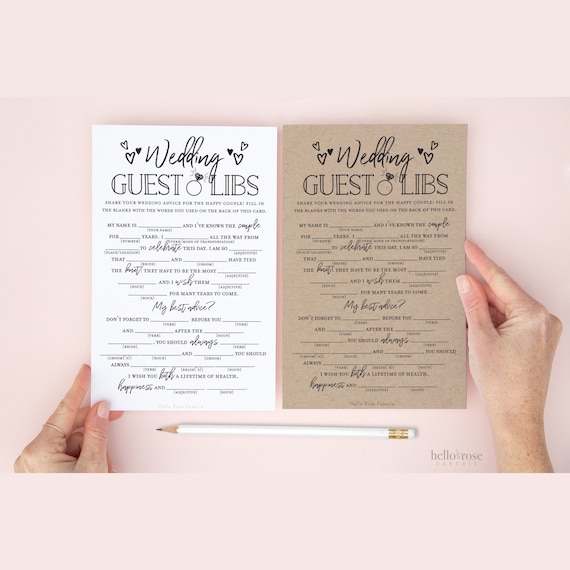 Wedding
GUEST LIBS
SHARE YOUR WEDDING ADVICE FOR THE HAPPY COUPLE! FILL IN
THE BLANKS WITH THE WORDS YOU USED ON THE BACK OF THIS CARD.
MY NAME IS AND I'VE KNOWN THE couple
(YOUR NAME)
FOR YEARS. I ALL THE WAY FROM
(NUMBER) (VERB/MODE OF TRANSPORTATION)
TO celebrate THIS DAY. I AM SO
(PLACE/LOCATION) (ADJECTIVE)
THAT AND HAVE TIED
THE knot! THEY HAVE TO BE THE MOST
(ADJECTIVE)
AND I wish THEM
(NOUN)
FOR MANY YEARS TO COME.
My best advice?
DON'T FORGET TO BEFORE YOU
(VERB) (VERB)
AND AFTER THE
(VERB) (NOUN)
, YOU SHOULD always
AND , YOU SHOULD
(NOUN)
ALWAYS
(VERB)
I WISH YOU both A LIFETIME OF HEALTH,
happiness AND
(ADJECTIVE) (NOUN)
Hello Rose Paperie
Wedding
GUEST LIBS
SHARE YOUR WEDDING ADVICE FOR THE HAPPY COUPLE! FILL IN
THE BLANKS WITH THE WORDS YOU USED ON THE BACK OF THIS CARD.
MY NAME IS AND I'VE KNOWN THE couple
(YOUR NAME)
FOR YEARS. I ALL THE WAY FROM
(NUMBER) (VERB/MODE OF TRANSPORTATION)
TO celebrate THIS DAY. I AM SO
(PLACE/LOCATION) (ADJECTIVE)
THAT AND HAVE TIED
THE knot! THEY HAVE TO BE THE MOST
(ADJECTIVE)
AND I wish THEM
(NOUN)
FOR MANY YEARS TO COME.
My best advice?
DON'T FORGET TO BEFORE YOU
(VERB) (VERB)
AND AFTER THE
(VERB) (NOUN)
, YOU SHOULD always
AND , YOU SHOULD
(NOUN)
ALWAYS
(VERB)
I WISH YOU both A LIFETIME OF HEALTH,
happiness AND
(ADJECTIVE) (NOUN)
Hello Rose Paperie
hello rose
PAPERIE